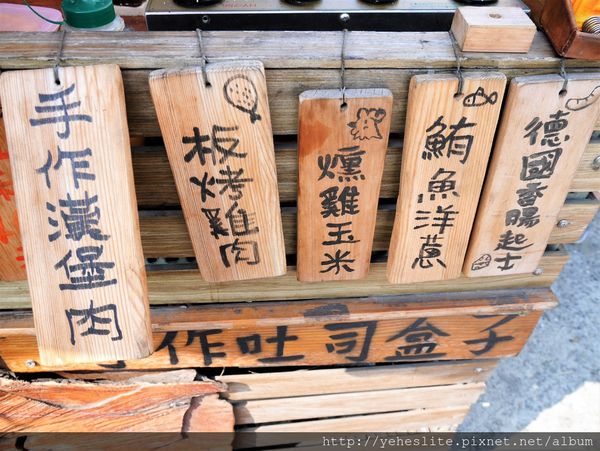 手作漢堡肉
板烤雞肉
燻雞玉米
鮪魚洋蔥
德國香腸起士
手作吐司盒子
http://yeheslite.pixnet.net/album